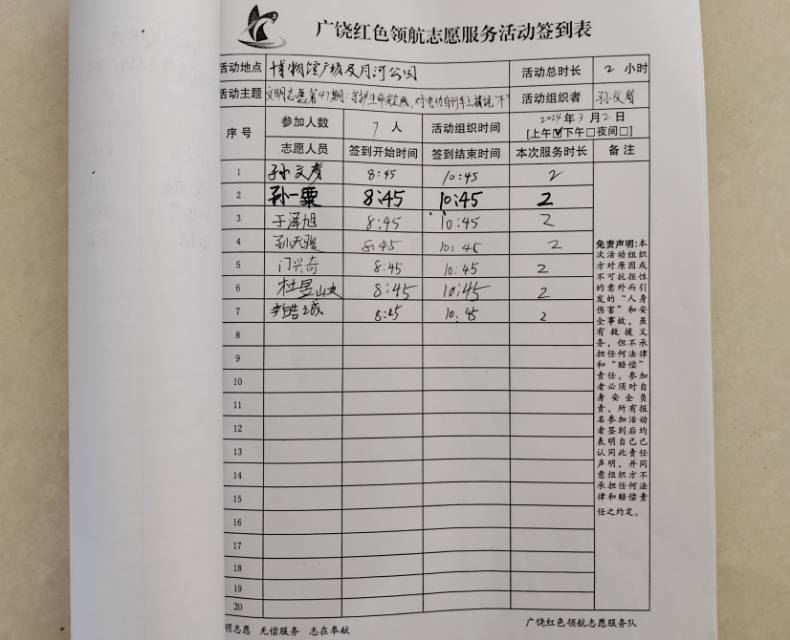 广饶红色领航志愿服务活动签到表
活动地点 博物馆广场及月河公园 活动总时长 2 小时
活动主题 文明志愿第47期:守护生命安全线,对电动自行车上楼说"不" 活动组织者 孙文彦
序号 参加人数 7 人 活动组织时间 2024年3月2日
[上午☑下午□夜间□]
志愿人员 签到开始时间 签到结束时间 本次服务时长 备注
1 孙文彦 8:45 10:45 2
2 孙一粟 8:45 10:45 2
3 于泽旭 8:45 10:45 2
4 孙天骏 8:45 10:45 2
5 门兴奇 8:45 10:45 2
6 杜昱 8:45 10:45 2
7 皓诚 8:45 10:45 2
8
9
10
11
12
13
14
15
16
17
18
19
20
免责声明:本
次活动组织
方对原因或
不可抗拒性
的意外而引
发的"人身
伤害"和安
全事故,虽
有救援义
务,但不承
担任何法律
和"赔偿"
责任。参加
者必须对自
身安全负
责,所有报
名参加活动
者签到后均
表明自己已
认同此责任
声明,并同
意组织方不
承担任何法
律和赔偿责
任之约定。
明志愿 无偿服务 志在奉献 广饶红色领航志愿服务队